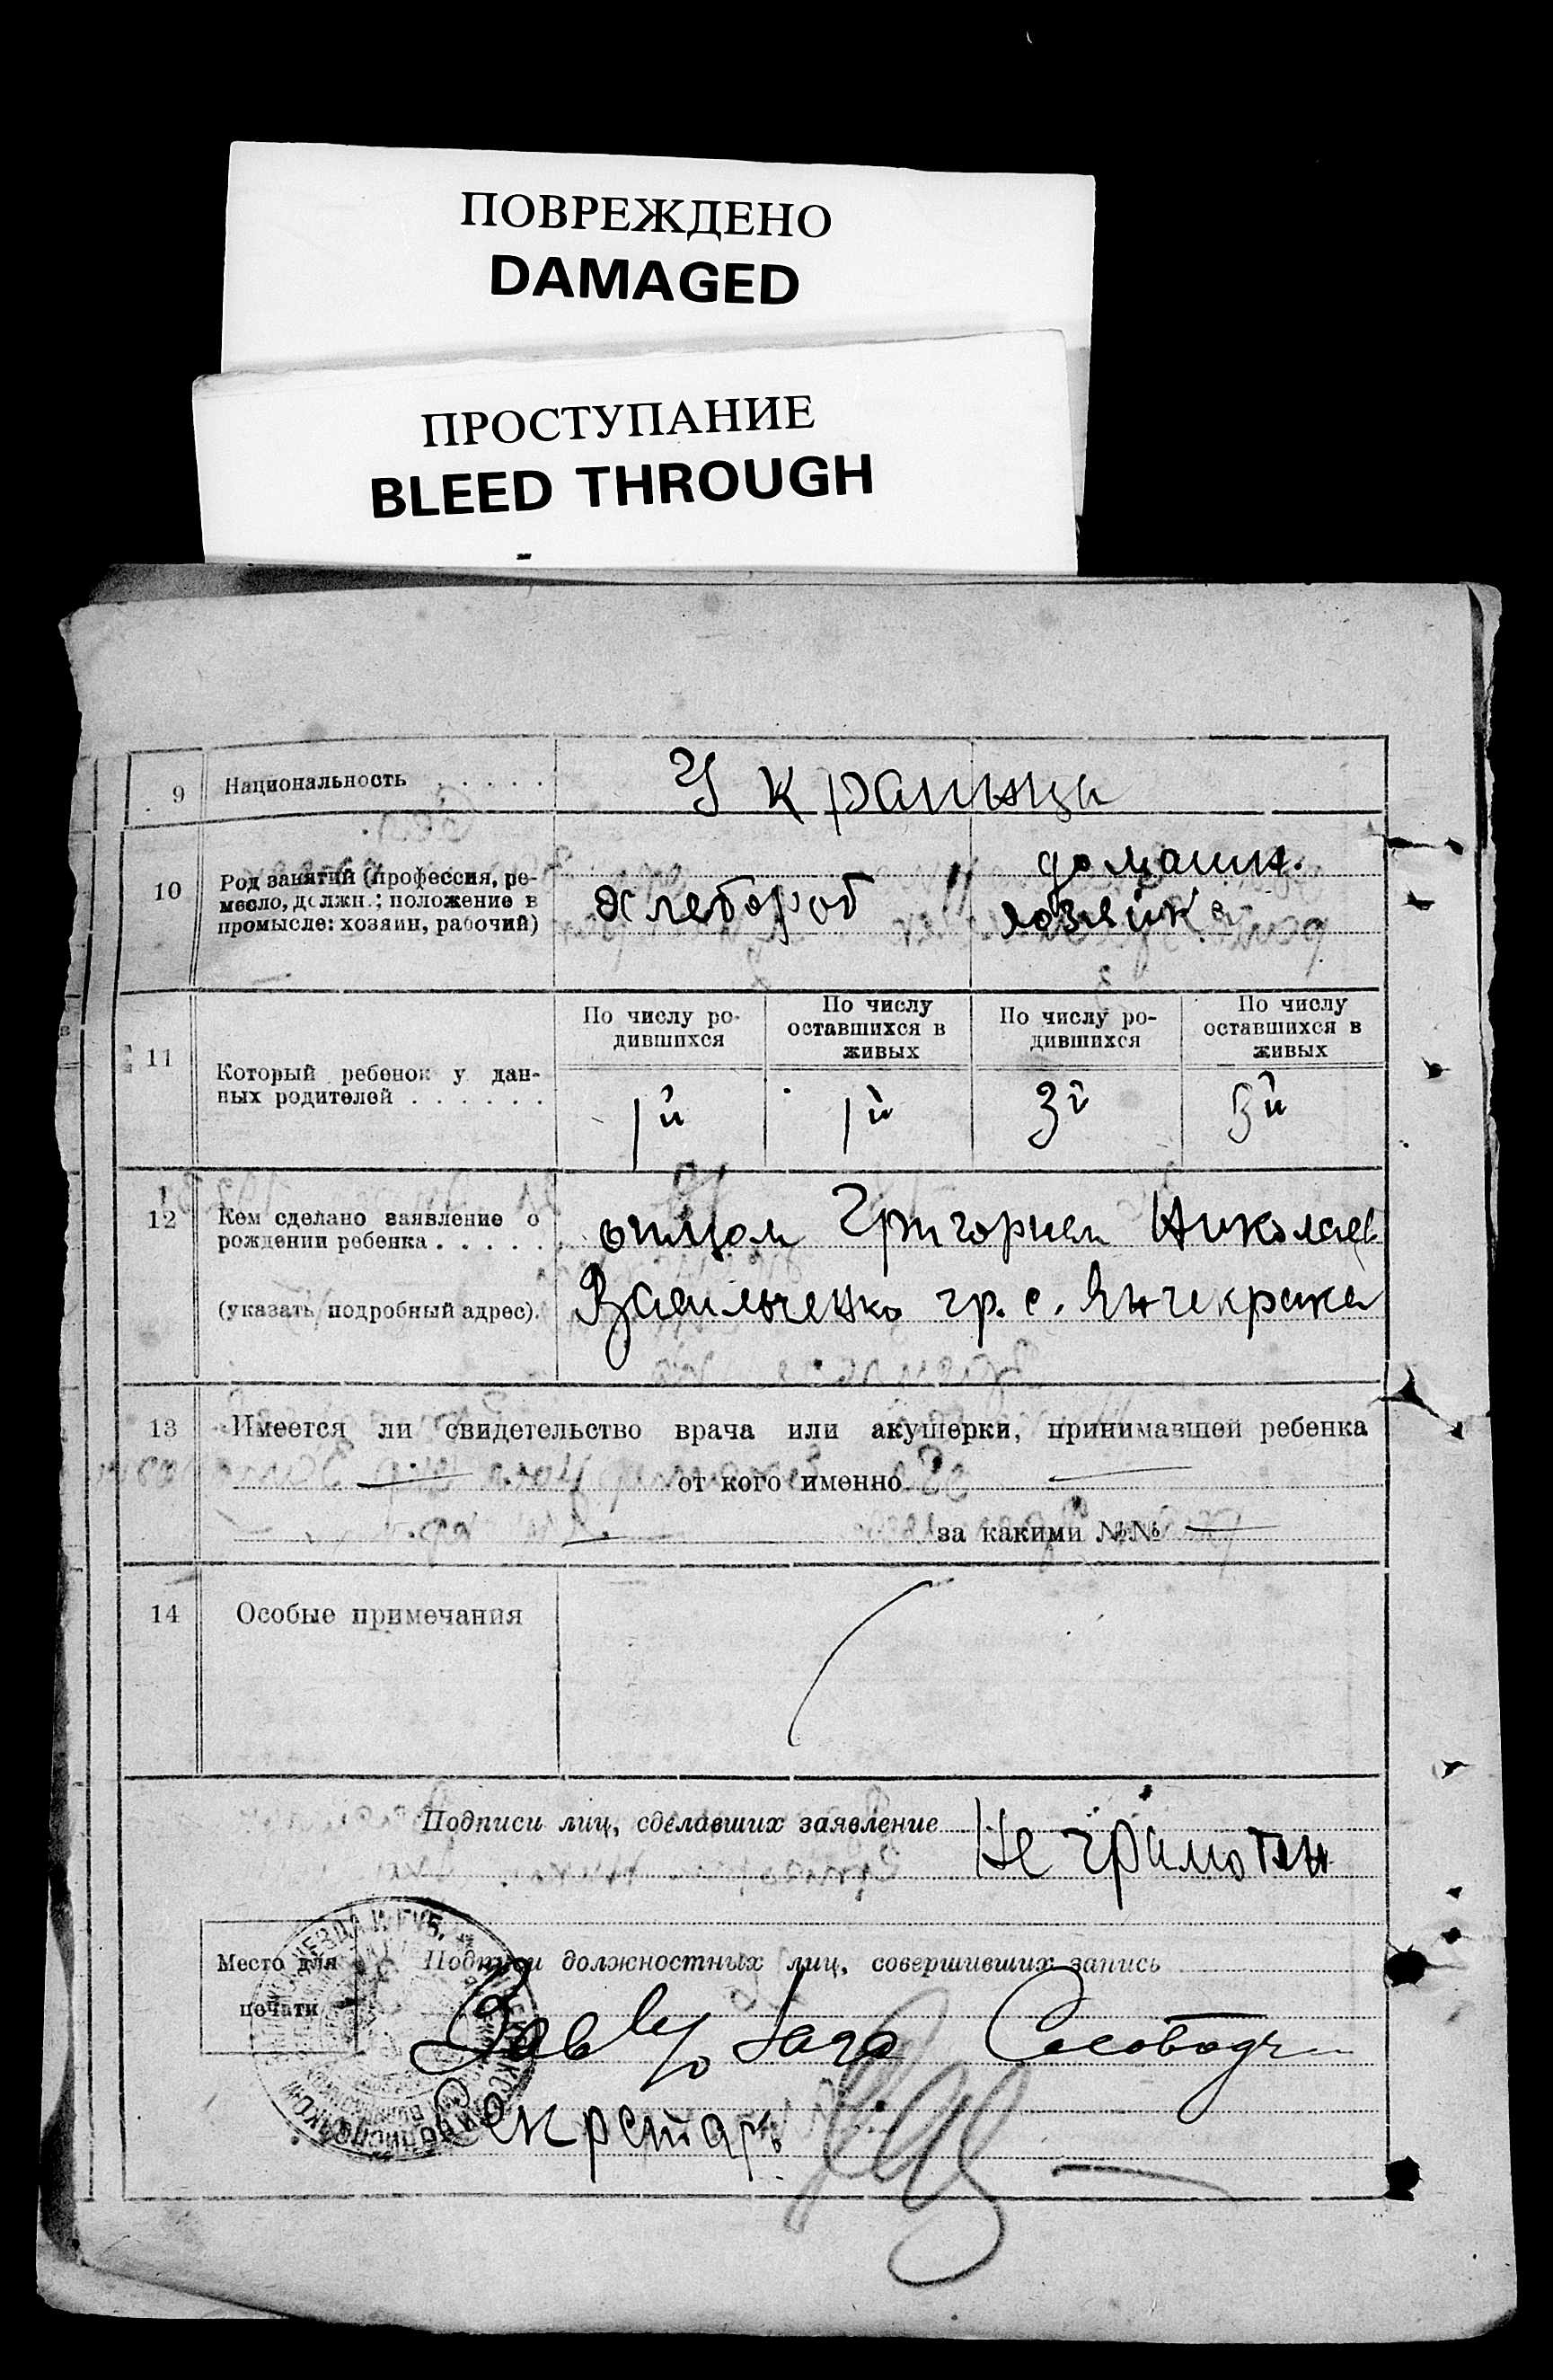 ПОВРЕЖДЕНО
DAMAGED
ПРОСТУПАНИЕ
BLEED THROUGH
9 Национальность . . . . . Украинцы
10 Род занятий (профессия, ре-
месло, должн.; положение в
промысле: хозяин, рабочий)
хлебороб
домашн.
хозяйка
11 Который ребенок у дан-
ных родителей . . . . . .
По числу ро-
дившихся
По числу
оставшихся в
живых
По числу ро-
дившихся
По числу
оставшихся в
живых
1й 1й 3й 3й
12 Кем сделано заявление о
рождении ребенка . . . . .
(указать подробный адрес).
отцом Григорием Николаев
Васильченко гр. с. Янчекрака
13 Имеется ли свидетельство врача или акушерки, принимавшей ребенка
— от кого именно —
— за какими №№ —
14 Особые примечания
Подписи лиц, сделавших заявление Не грамотен
Место для
печати
Подписи должностных лиц, совершивших запись
Зав
Секретарь